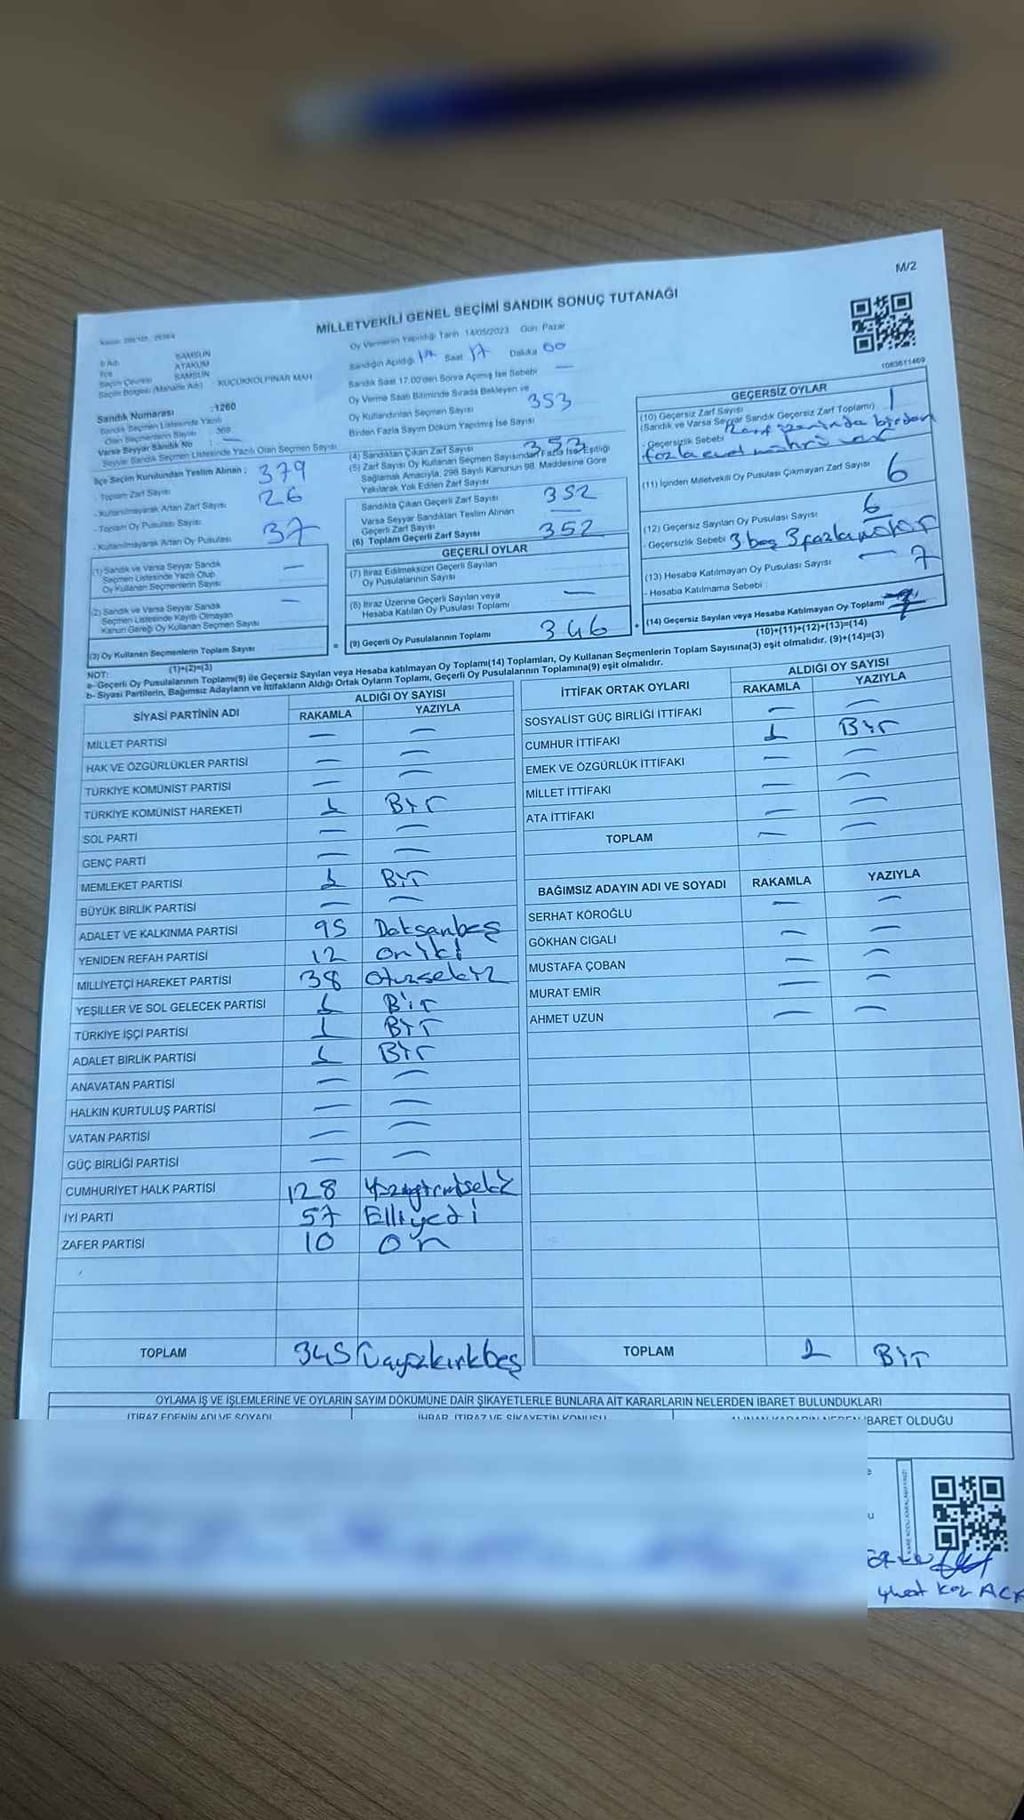 M/2
MİLLETVEKİLİ GENEL SEÇİMİ SANDIK SONUÇ TUTANAĞI
1083611469
İl Adı SAMSUN
İlçe ATAKUM
Seçim Çevresi SAMSUN
Seçim Bölgesi (Mahalle Adı) : KÜÇÜKKOLPINAR MAH
Sandık Numarası :1260
Sandık Seçmen Listesinde Yazılı
Olan Seçmenlerin Sayısı
Varsa Seyyar Sandık No —
Seyyar Sandık Seçmen Listesinde Yazılı Olan Seçmen Sayısı
İlçe Seçim Kurulundan Teslim Alınan :
- Toplam Zarf Sayısı 379
- Kullanılmayarak Artan Zarf Sayısı 26
- Toplam Oy Pusulası Sayısı
- Kullanılmayarak Artan Oy Pusulası 37
(1) Sandık ve Varsa Seyyar Sandık
Seçmen Listesinde Yazılı Olup
Oy Kullanan Seçmenlerin Sayısı —
(2) Sandık ve Varsa Seyyar Sandık
Seçmen Listesinde Kayıtlı Olmayan
Kanun Gereği Oy Kullanan Seçmen Sayısı —
(3) Oy Kullanan Seçmenlerin Toplam Sayısı
(1)+(2)=(3)
Oy Vermenin Yapıldığı Tarih 14/05/2023 Gün Pazar
Sandığın Açıldığı Saat 17 Dakika 00
Sandık Saat 17.00'den Sonra Açılmış İse Sebebi —
Oy Verme Saati Bitiminde Sırada Bekleyen ve
Oy Kullandırılan Seçmen Sayısı 353
Birden Fazla Sayım Döküm Yapılmış İse Sayısı
(4) Sandıktan Çıkan Zarf Sayısı 353
(5) Zarf Sayısı Oy Kullanan Seçmen Sayısından Fazla İse Eşitliği
Sağlamak Amacıyla, 298 Sayılı Kanunun 98. Maddesine Göre
Yakılarak Yok Edilen Zarf Sayısı
Sandıkta Çıkan Geçerli Zarf Sayısı 352
Varsa Seyyar Sandıktan Teslim Alınan
Geçerli Zarf Sayısı —
(6) Toplam Geçerli Zarf Sayısı 352
GEÇERLİ OYLAR
(7) İtiraz Edilmeksizin Geçerli Sayılan
Oy Pusulalarının Sayısı
(8) İtiraz Üzerine Geçerli Sayılan veya
Hesaba Katılan Oy Pusulası Toplamı —
(9) Geçerli Oy Pusulalarının Toplamı 346
GEÇERSİZ OYLAR
(10) Geçersiz Zarf Sayısı 1
(Sandık ve Varsa Seyyar Sandık Geçersiz Zarf Toplamı)
- Geçersizlik Sebebi Zarf üzerinde birden
fazla evet mührü var
(11) İçinden Milletvekili Oy Pusulası Çıkmayan Zarf Sayısı 6
(12) Geçersiz Sayılan Oy Pusulası Sayısı 6
- Geçersizlik Sebebi 3 boş 3 fazla
(13) Hesaba Katılmayan Oy Pusulası Sayısı — 7
- Hesaba Katılmama Sebebi
(14) Geçersiz Sayılan veya Hesaba Katılmayan Oy Toplamı 7
(10)+(11)+(12)+(13)=(14)
NOT:
a- Geçerli Oy Pusulalarının Toplamı(9) ile Geçersiz Sayılan veya Hesaba katılmayan Oy Toplamı(14) Toplamları, Oy Kullanan Seçmenlerin Toplam Sayısına(3) eşit olmalıdır. (9)+(14)=(3)
b- Siyasi Partilerin, Bağımsız Adayların ve İttifakların Aldığı Ortak Oyların Toplamı, Geçerli Oy Pusulalarının Toplamına(9) eşit olmalıdır.
SİYASİ PARTİNİN ADI ALDIĞI OY SAYISI
RAKAMLA YAZIYLA
MİLLET PARTİSİ — —
HAK VE ÖZGÜRLÜKLER PARTİSİ — —
TÜRKİYE KOMÜNİST PARTİSİ — —
TÜRKİYE KOMÜNİST HAREKETİ 1 Bir
SOL PARTİ — —
GENÇ PARTİ — —
MEMLEKET PARTİSİ 1 Bir
BÜYÜK BİRLİK PARTİSİ — —
ADALET VE KALKINMA PARTİSİ 95 Doksanbeş
YENİDEN REFAH PARTİSİ 12 oniki
MİLLİYETÇİ HAREKET PARTİSİ 38 otuzsekiz
YEŞİLLER VE SOL GELECEK PARTİSİ 1 Bir
TÜRKİYE İŞÇİ PARTİSİ 1 Bir
ADALET BİRLİK PARTİSİ 1 Bir
ANAVATAN PARTİSİ — —
HALKIN KURTULUŞ PARTİSİ — —
VATAN PARTİSİ — —
GÜÇ BİRLİĞİ PARTİSİ — —
CUMHURİYET HALK PARTİSİ 128 Yüzyirmisekiz
İYİ PARTİ 57 Elliyedi
ZAFER PARTİSİ 10 on
TOPLAM 345 Üçyüzkırkbeş
İTTİFAK ORTAK OYLARI ALDIĞI OY SAYISI
RAKAMLA YAZIYLA
SOSYALİST GÜÇ BİRLİĞİ İTTİFAKI — —
CUMHUR İTTİFAKI 1 Bir
EMEK VE ÖZGÜRLÜK İTTİFAKI — —
MİLLET İTTİFAKI — —
ATA İTTİFAKI — —
TOPLAM — —
BAĞIMSIZ ADAYIN ADI VE SOYADI RAKAMLA YAZIYLA
SERHAT KÖROĞLU — —
GÖKHAN CIGALI — —
MUSTAFA ÇOBAN — —
MURAT EMİR — —
AHMET UZUN — —
TOPLAM 1 Bir
OYLAMA İŞ VE İŞLEMLERİNE VE OYLARIN SAYIM DÖKÜMÜNE DAİR ŞİKAYETLERLE BUNLARA AİT KARARLARIN NELERDEN İBARET BULUNDUKLARI
İTİRAZ EDENİN ADI VE SOYADI İHBAR, İTİRAZ VE ŞİKAYETİN KONUSU ALINAN KARARIN NEDEN İBARET OLDUĞU